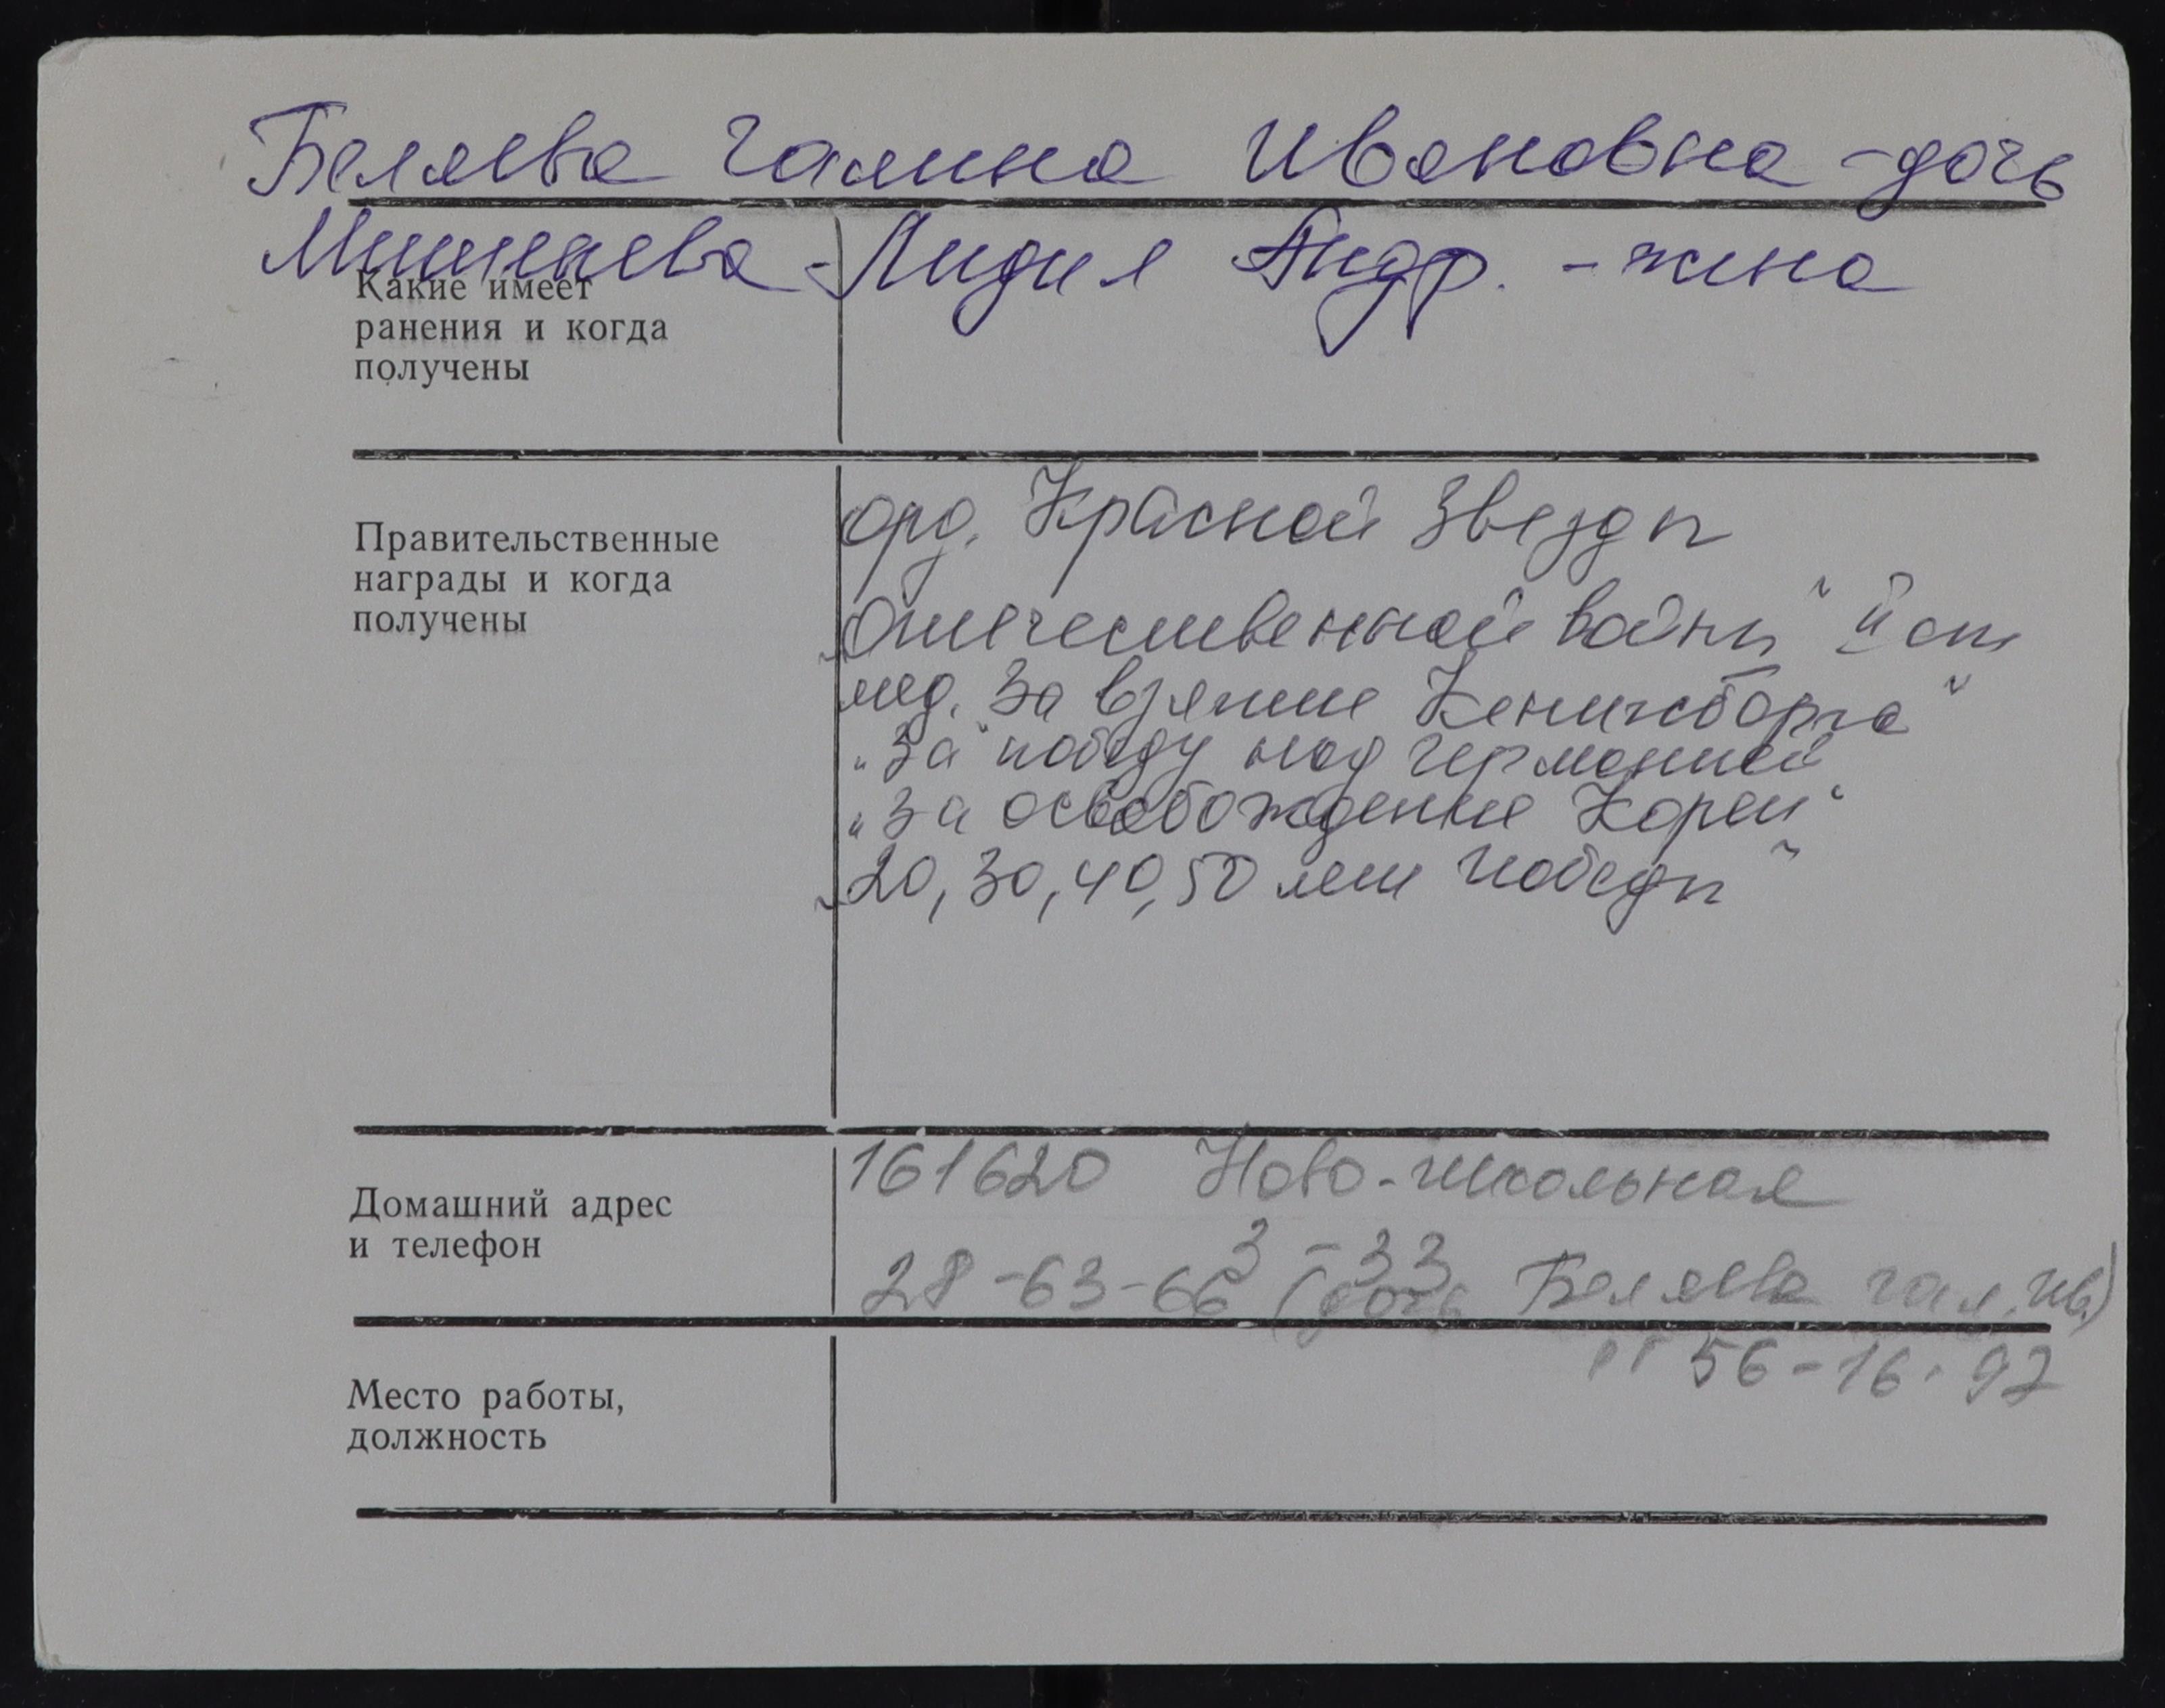 Беляева Галина Ивановна - дочь
Мишенева - Лидия Андр. - жена
Какие имеет
ранения и когда
получены
Правительственные
награды и когда
получены
орд. Красной Звезды
„Отечественной войны" II ст
мед. За взятие Кенигсборга"
„За" победу над Германией
„За освобождение Кореи"
„20, 30, 40, 50 лет Победы"
Домашний адрес
и телефон
161620 Ново-школьная
3-33
28-63-66 (дочь Беляева Гал. Ив.)
" 56-16-92
Место работы,
должность